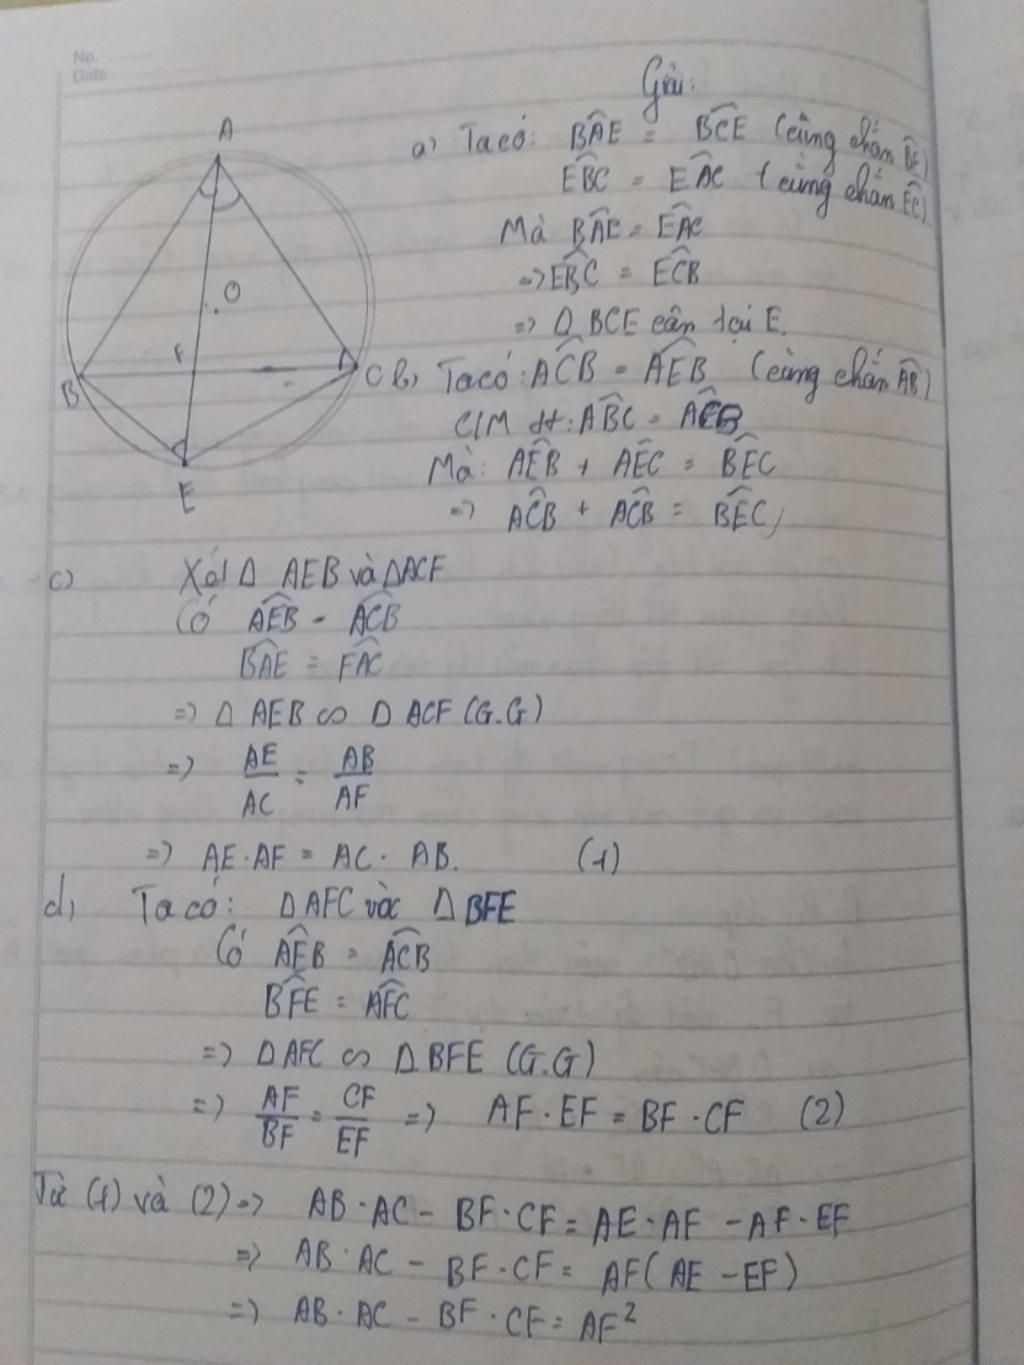 No.
Date
Giải:
a) Ta có: BÂE = BĈE (cùng chắn BE)
EB̂C = EÂC (cùng chắn EC)
Mà BÂE = EÂC
=> EB̂C = EĈB
=> Δ BCE cân tại E.
b, Ta có: AĈB = AÊB (cùng chắn AB)
C/M tt: AB̂C = AÊB
Mà: AÊB + AÊC = BÊC
=> AĈB + AĈB = BÊC
A
O
F
B
C
E
c) Xét Δ AEB và ΔACF
Có AÊB = AĈB
BÂE = FÂC
=> Δ AEB ∽ Δ ACF (G.G)
=> AE/AC = AB/AF
=> AE . AF = AC . AB. (1)
d, Ta có: ΔAFC và Δ BFE
Có AÊB = AĈB
BF̂E = AF̂C
=> ΔAFC ∽ Δ BFE (G.G)
=> AF/BF = CF/EF => AF . EF = BF . CF (2)
Từ (1) và (2) => AB . AC - BF . CF = AE . AF - AF . EF
=> AB . AC - BF . CF = AF( AE - EF)
=> AB . AC - BF . CF = AF²